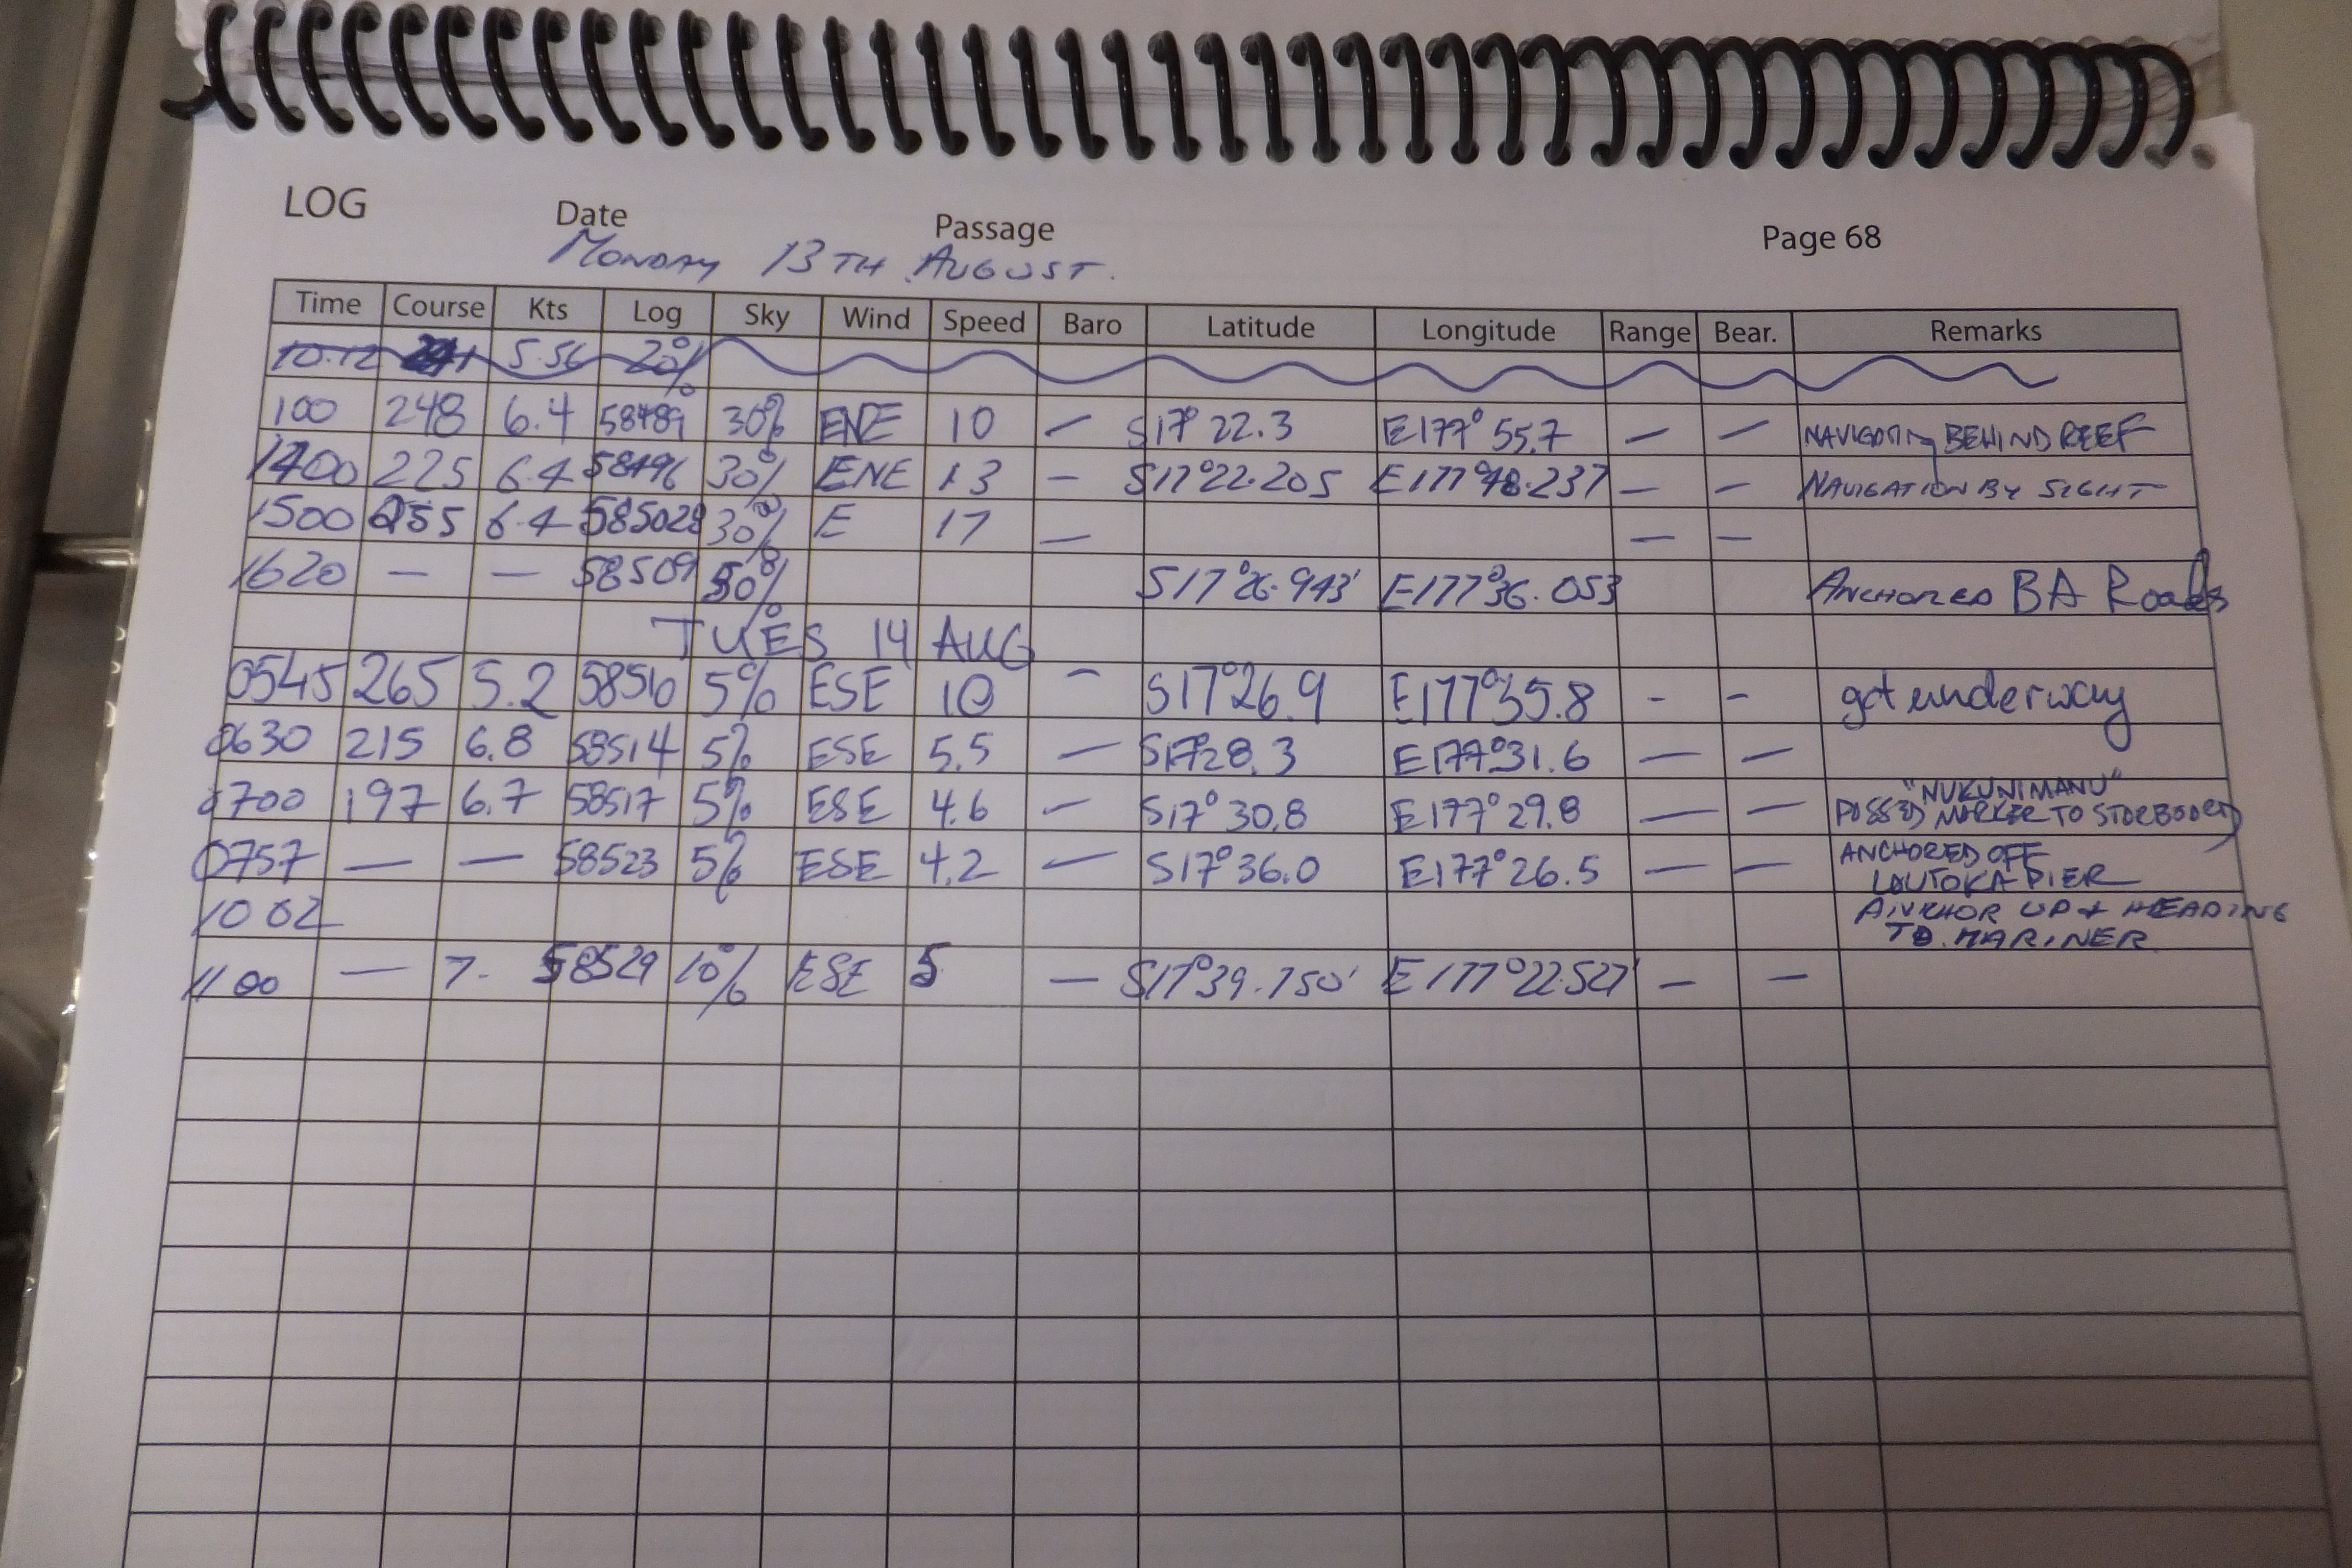 LOG Date Passage Page 68
MONDAY 13TH AUGUST.
Time Course Kts Log Sky Wind Speed Baro Latitude Longitude Range Bear. Remarks
10.12 5.56 20%
100 248 6.4 58489 30% ENE 10 — S17° 22.3 E177° 55.7 — — NAVIGATING BEHIND REEF
1400 225 6.4 58496 30% ENE 13 — S17°22.205 E177°48.237 — — NAVIGATION BY SIGHT
1500 255 6.4 58502 30% E 17 — — —
1620 — — 58509 50% S17°26.943' E177°36.053 ANCHORED BA Roads
TUES 14 AUG
0545 265 5.2 58510 5% ESE 10 - S17°26.9 E177°35.8 - - got underway
0630 215 6.8 58514 5% ESE 5.5 — S17°28.3 E177°31.6 — —
0700 197 6.7 58517 5% ESE 4.6 — S17° 30.8 E177° 29.8 — — "NUKUNIMANU"
PASSED MARKER TO STARBOARD
0757 — — 58523 5% ESE 4.2 — S17° 36.0 E177° 26.5 — — ANCHORED OFF
LAUTOKA PIER
1002 ANCHOR UP + HEADING
TO MARINER
1100 — 7. 58529 10% ESE 5 — S17°39.750' E177°22.527' — —